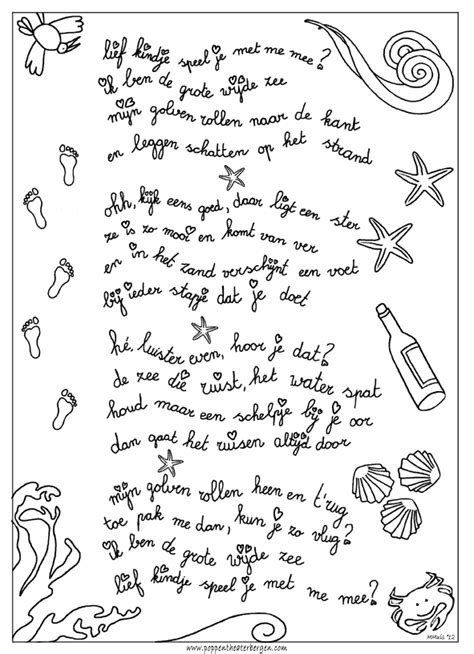 lief kindje speel je met me mee?
ik ben de grote wijde zee
mijn golven rollen naar de kant
en leggen schatten op het strand
ohh, kijk eens goed, daar ligt een ster
ze is zo mooi en komt van ver
en in het zand verschijnt een voet
bij ieder stapje dat je doet
hé, luister even, hoor je dat?
de zee die ruist, het water spat
houd maar een schelpje bij je oor
dan gaat het ruisen altijd door
mijn golven rollen heen en t'rug
toe pak me dan, kun je zo vlug?
ik ben de grote wijde zee
lief kindje speel je met me mee?
MMuis '12
www.poppentheaterbergen.com